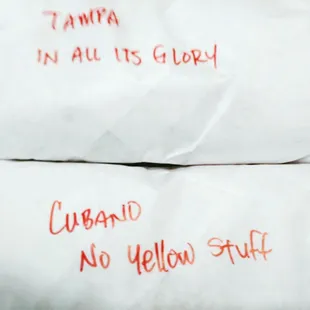 TAMPA
IN ALL ITS GLORY
CUBANO
No Yellow Stuff